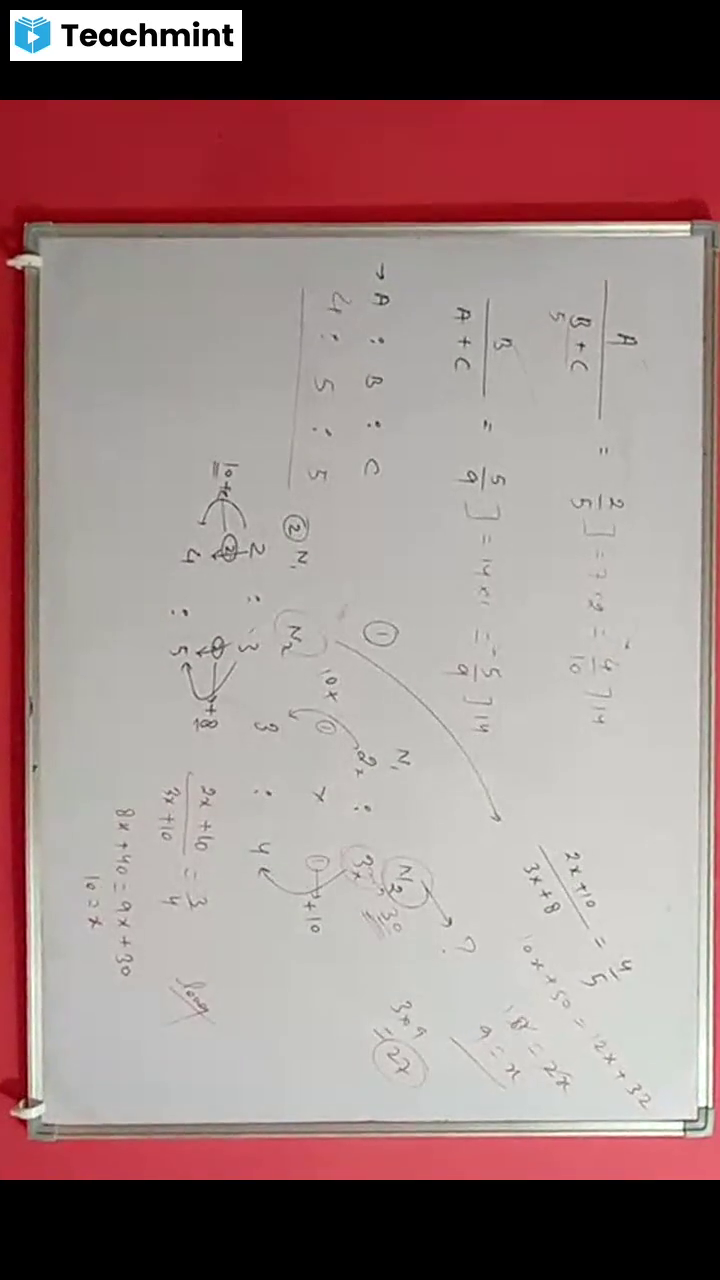 Teachmint
A / B + C = 2/5 ] = 7 × 2 = 4/10 ] 14
5
B / A + C = 5/9 ] = 14 × 1 = 5/9 ] 14
→ A : B : C
4 : 5 : 5
① N₁ : N₂ → ?
2x : 3x = 30
10x
① × ① +10
3 : 4
2x + 10 / 3x + 10 = 3/4
8x + 40 = 9x + 30
10 = x
long
② N₁ N₂
2 : 3
10+
+8
4 : 5
2x + 10 / 3x + 8 = 4/5
10x + 50 = 12x + 32
18 = 2x
9 = x
3×9
= 27